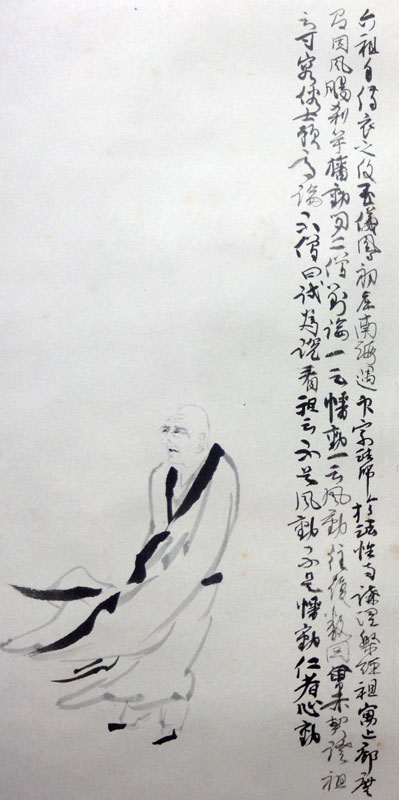 六祖自傳衣之後至儀鳳初居南海遇印宗法師於法性寺講涅槃經祖寓止廊廡
間因風颺刹竿幡動聞二僧對論一云幡動一云風動往復數回曾未契證祖
云可容俗士預高論不僧曰試為說看祖云不是風動不是幡動仁者心動